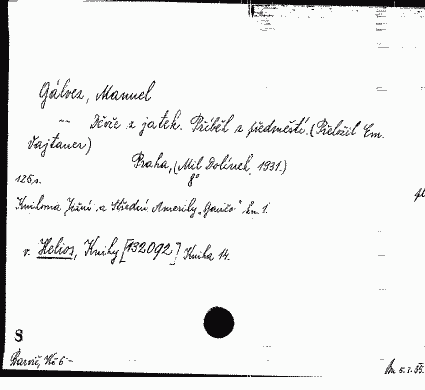 Gálvez, Manuel
-- Děvče z jatek. Příběh z předměstí. (Přeložil Em.
Vajtauer)
Praha, (Mil Dolínek, 1931.)
8°
126 s.
Knihovna Jižní a Střední Ameriky „Gaučo" sv. 1.
v. Helios, Knihy [132092] Kniha 14.
8
Barvíř, Kč 6-